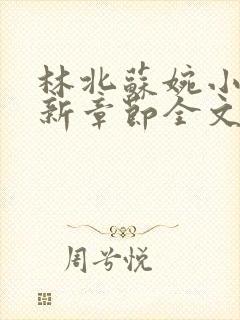 林北蘇婉小
新章節全文
周兮悦